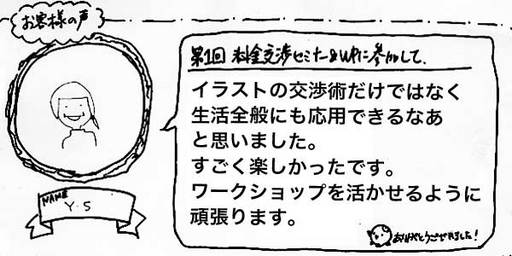 お客様の声
第1回 料金交渉セミナー&WPに参加して.
イラストの交渉術だけではなく
生活全般にも応用できるなあ
と思いました。
すごく楽しかったです。
ワークショップを活かせるように
頑張ります。
ありがとうございました!
NAME
Y.S